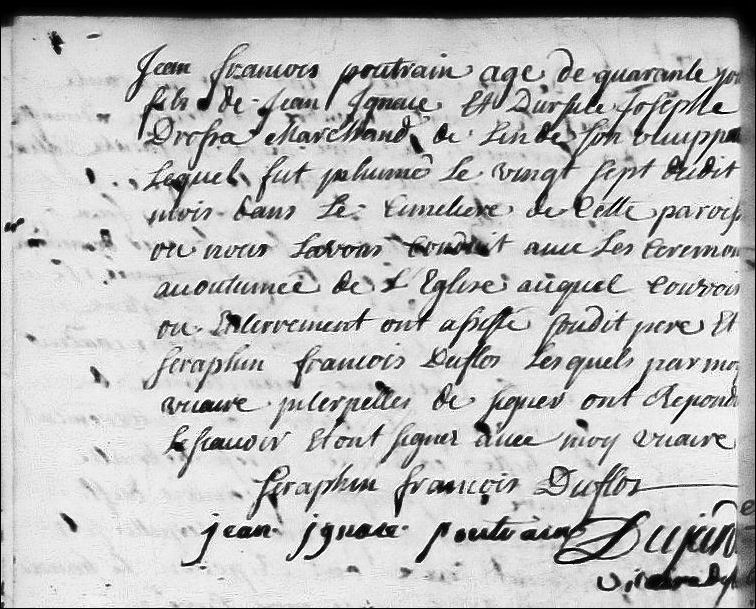 Jean francois poutrain age de quarante jou
fils de Jean Ignace Et Dursule Josephe
Drofra Marchand de Lin de son
Lequel fut jnhumé Le vingt sept dudit
mois dans Le Cimetiere de Cette paroiss
ou nous Lavons Conduit avec Les Ceremon
acoutumée de L'Eglise auquel Convois
ou Enterrement ont assisté sondit pere Et
Seraphin francois Duflos Lesquels par moy
vicaire jnterpellés de signer ont Repondu
Le scavoir Et ont signer avec moy vicaire
Seraphin francois Duflos
jean jgnace poutrain
vicaire